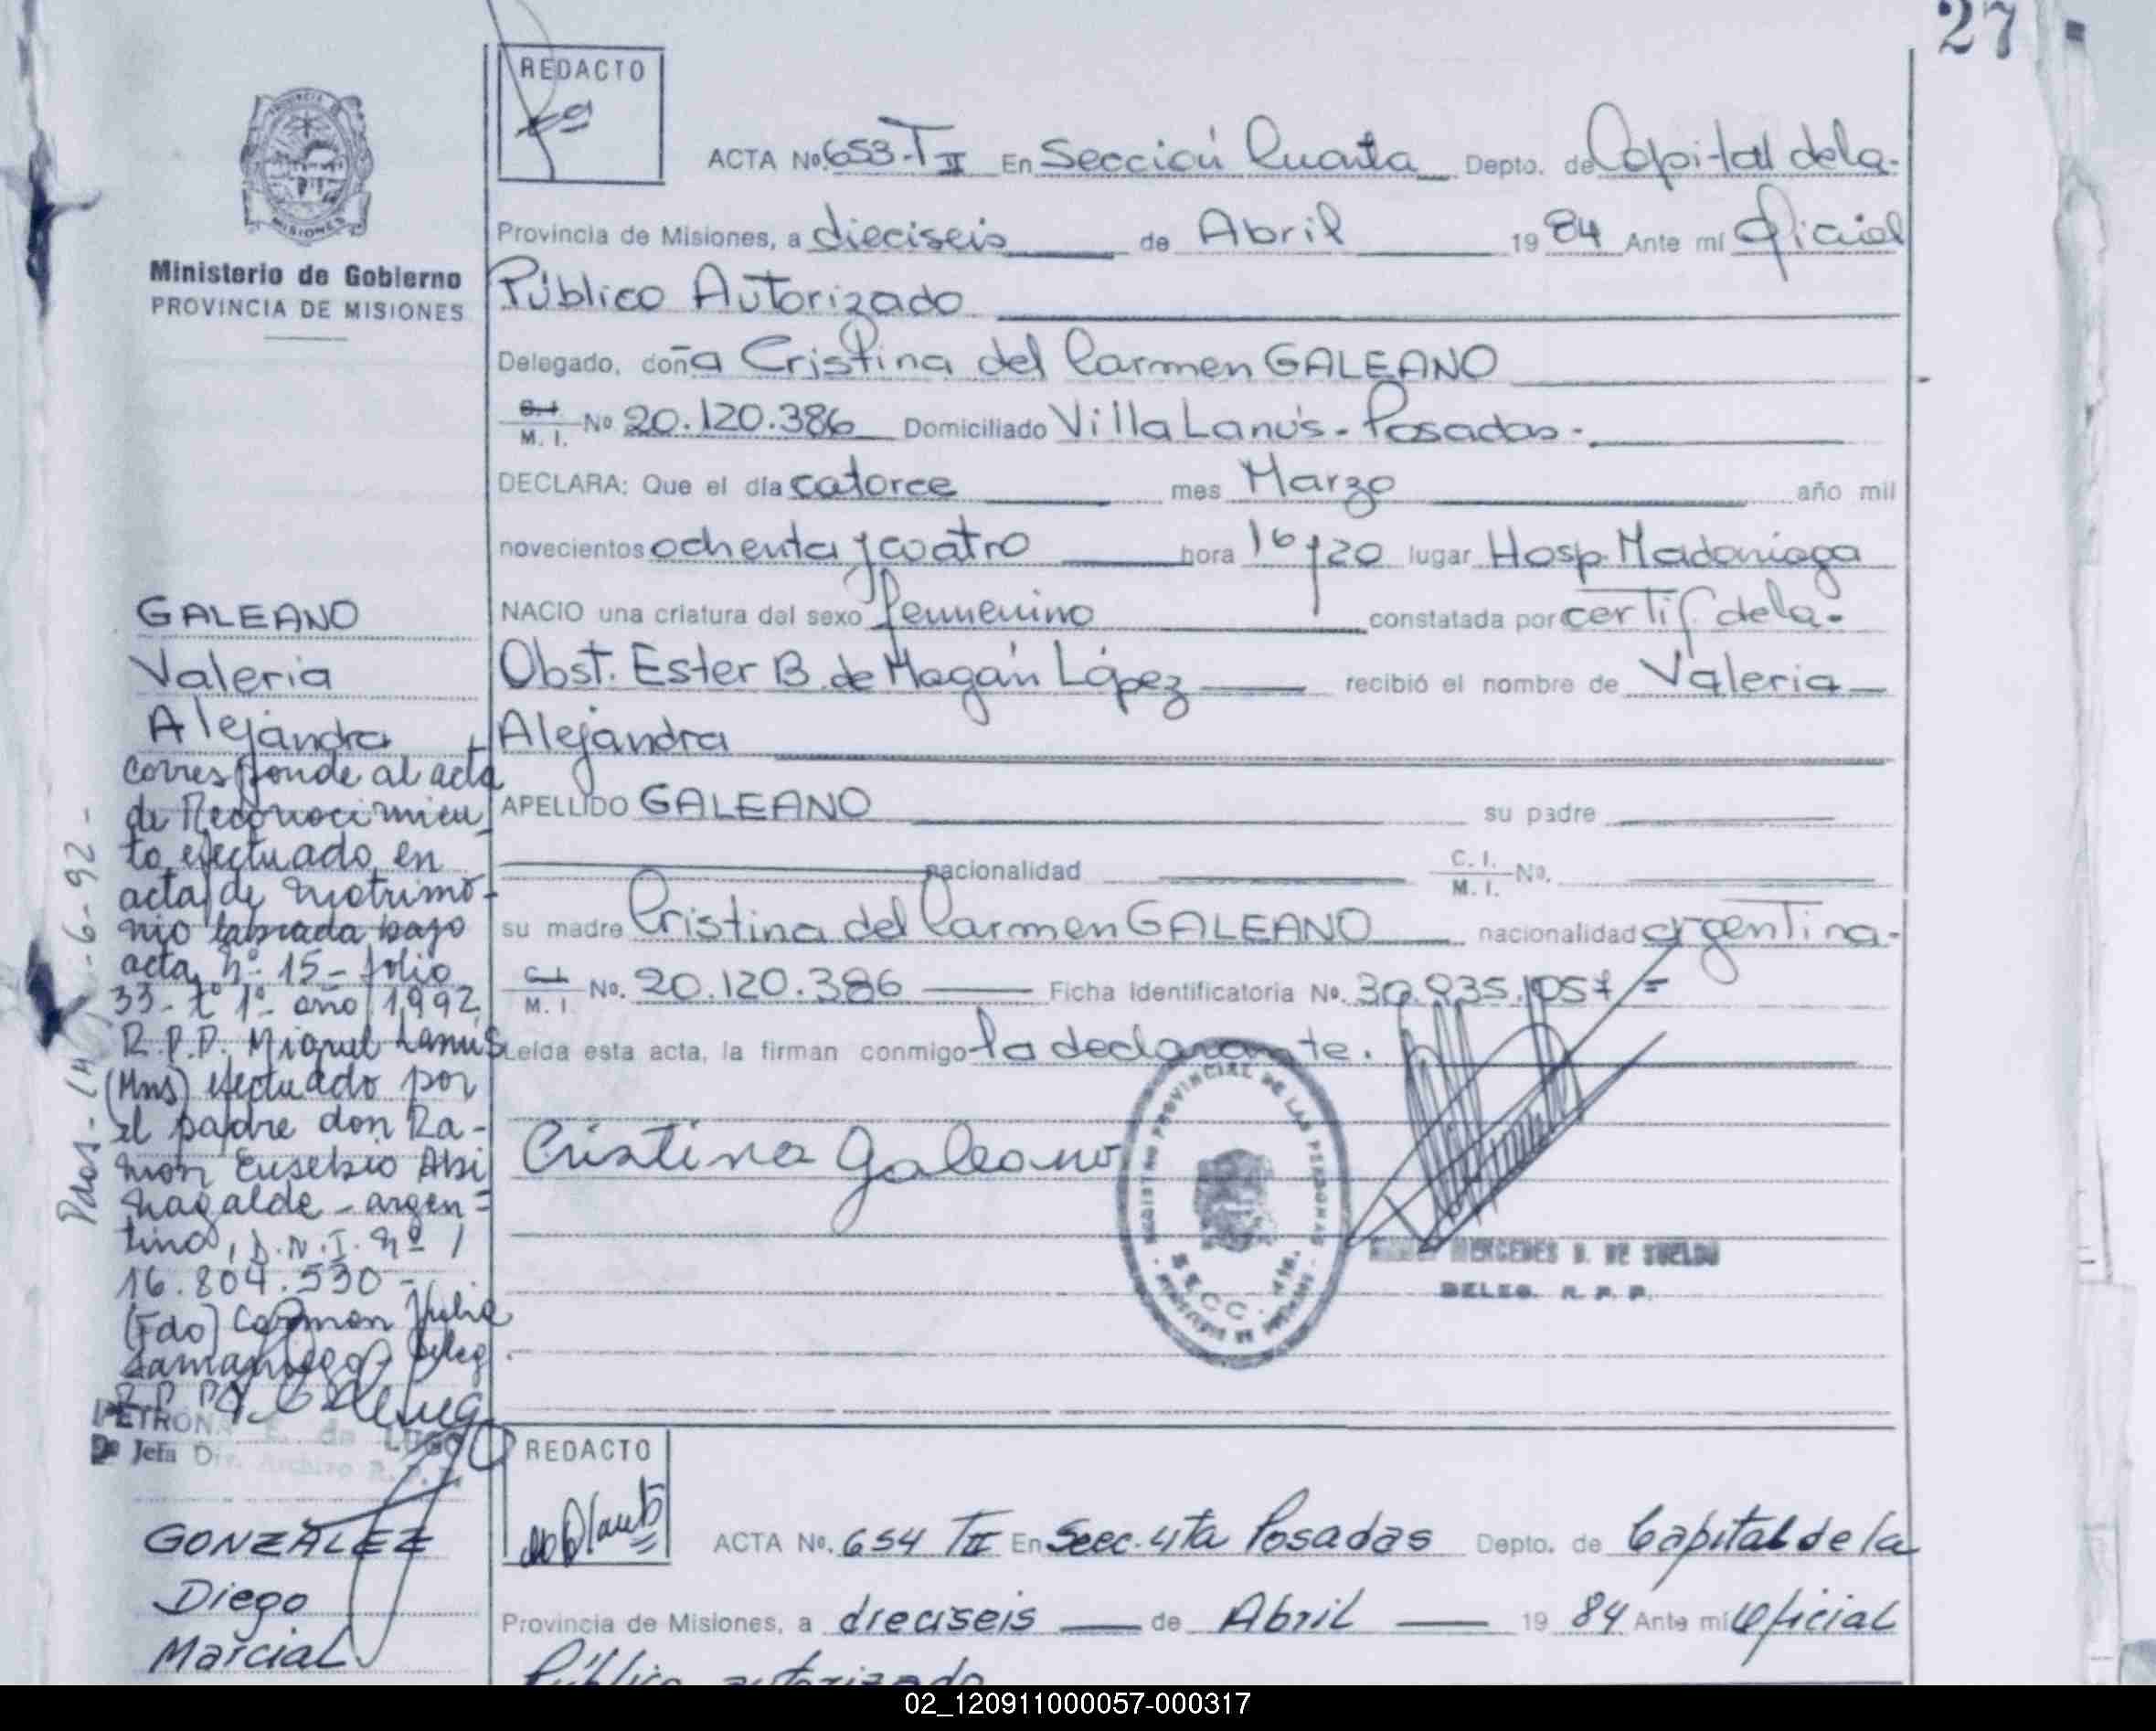 27
REDACTO
ACTA Nº 653-T II En Sección Cuarta Depto. de Capital de la-
Provincia de Misiones, a dieciseis de Abril 19 84 Ante mí Oficial
Público Autorizado
Delegado, doña Cristina del Carmen GALEANO
C.I. M. I. Nº 20.120.386 Domiciliado Villa Lanús - Posadas -
DECLARA: Que el día catorce mes Marzo año mil
novecientos ochenta y cuatro hora 16 y 20 lugar Hosp. Madariaga
NACIO una criatura del sexo femenino constatada por certif de la-
Obst. Ester B. de Magán López recibió el nombre de Valeria
Alejandra
APELLIDO GALEANO su padre
nacionalidad C. I. M. I. No.
su madre Cristina del Carmen GALEANO nacionalidad argentina-
C.I. M. I. No. 20.120.386 Ficha Identificatoria No. 30.835.
Leída esta acta, la firman conmigo la declarante.
Cristina Galeano
REGISTRO PROVINCIAL DE LAS PERSONAS
MERCEDES B. DE SUELDO
DELEG. R. P. P.
PROVINCIA DE
MISIONES
Ministerio de Gobierno
PROVINCIA DE MISIONES
GALEANO
Valeria
Alejandra
Corresponde al acta
de Reconocimien_
to efectuado en
acta de matrimo-
nio labrada bajo
acta nº 15 - folio
33 - tº 1º - año 1992
R.P.P. Miguel Lanús
(Mns) efectuado por
el padre don Ra-
món Eusebio Abi
nagalde - argen=
tino, D.N.I. nº
16.804.530 -
(Fdo) Carmen Julia
Samaniego - Deleg.
R.P.P.
Pdas -
-6-92-
PETRONA E. de LUGO
Jefa Div. Archivo R. P. P.
REDACTO
ACTA No. 654 TII En Secc. 4ta Posadas Depto. de Capital de la
Provincia de Misiones, a dieciseis de Abril 19 84 Ante mí Oficial
Público autorizado
GONZALEZ
Diego
Marcial
02_120911000057-000317